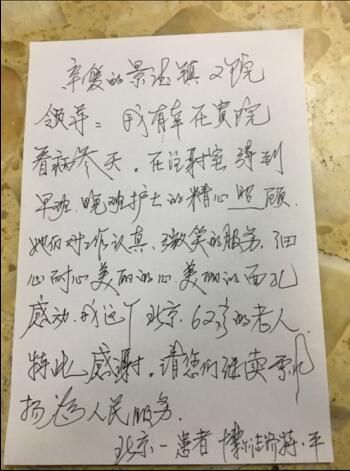 亲爱的景德镇2院
领导：我有幸在贵院
看病多天，在注射室得到
早班.晚班护士的精心照顾.
她们对工作认真，微笑的服务.细
心耐心美丽的心.美丽的面孔
感动.我这个北京.62岁的老人.
特此感谢.请您们继续
扬为人民服务.
北京一患者 博 平